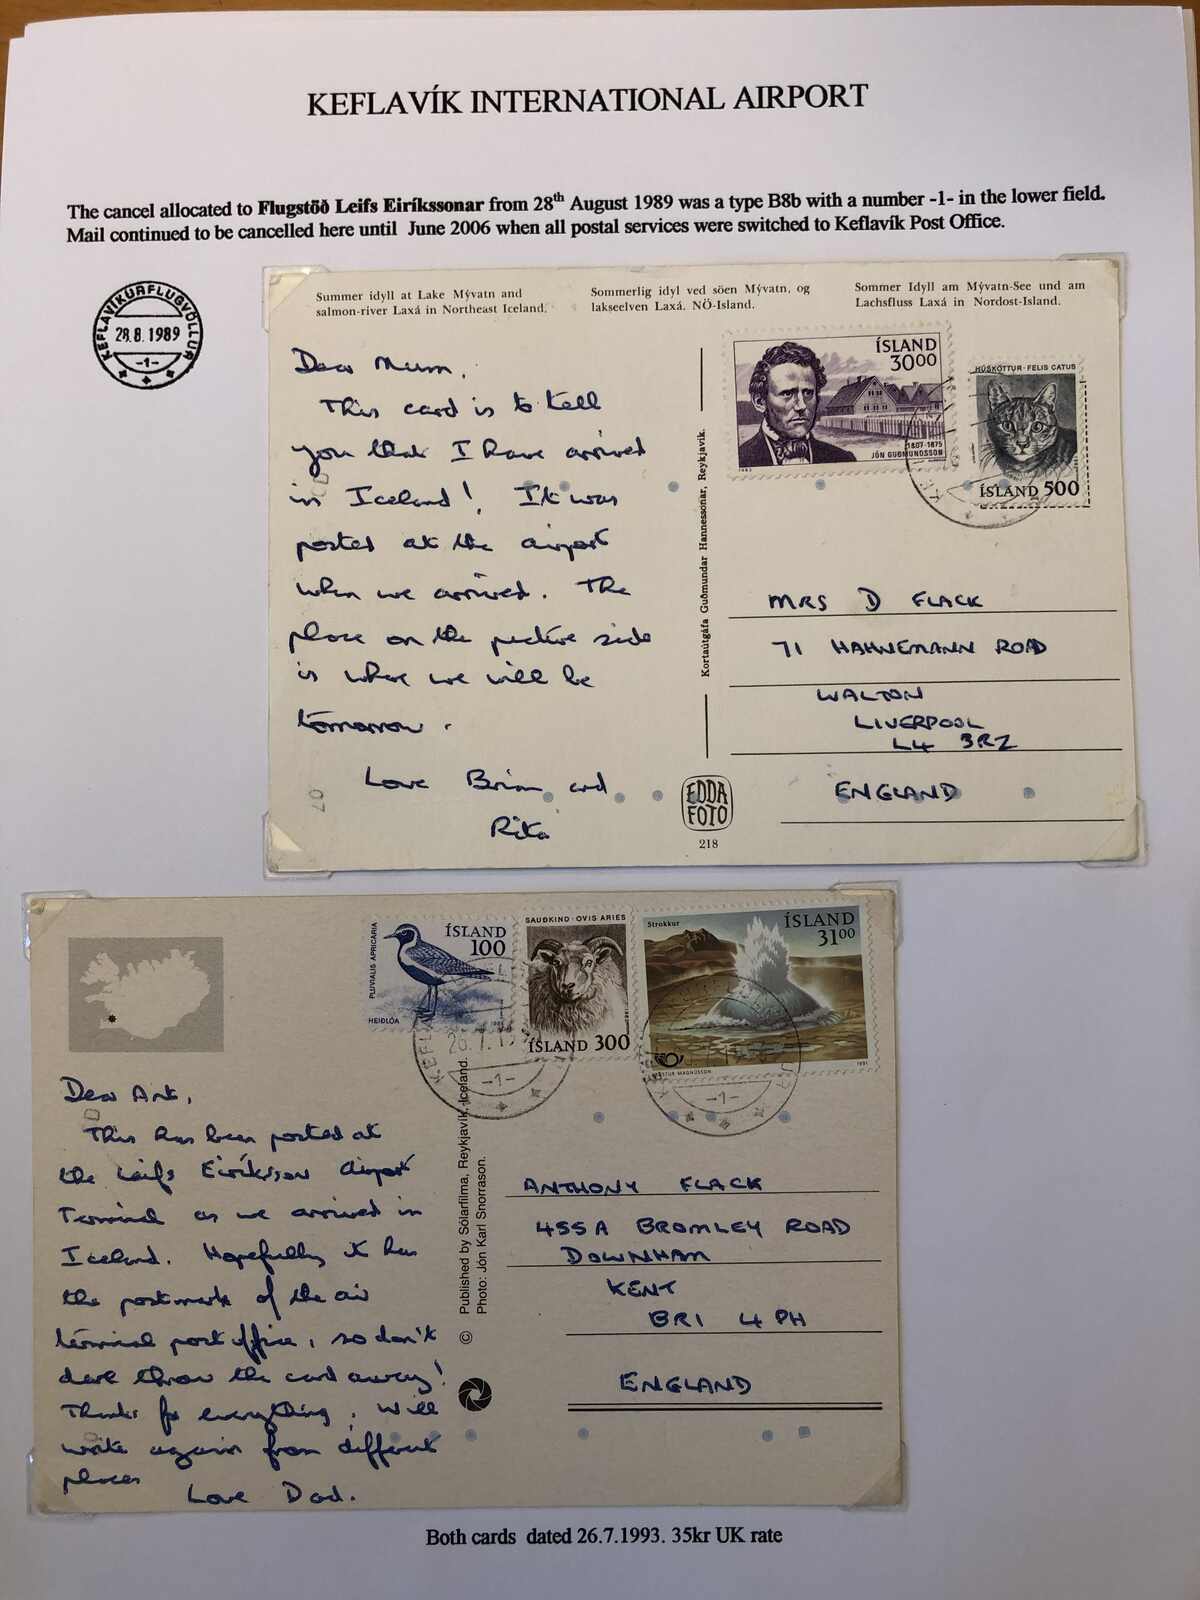 KEFLAVÍK INTERNATIONAL AIRPORT
The cancel allocated to Flugstöð Leifs Eiríkssonar from 28th August 1989 was a type B8b with a number -1- in the lower field.
Mail continued to be cancelled here until June 2006 when all postal services were switched to Keflavík Post Office.
KEFLAVÍKURFLUGVÖLLUR
28.8.1989
-1-
Summer idyll at Lake Mývatn and
salmon-river Laxá in Northeast Iceland.
Sommerlig idyl ved söen Mývatn, og
lakseelven Laxá. NÖ-Island.
Summer Idyll am Mývatn-See und am
Lachsfluss Laxá in Nordost-Island.
Dear Mum,
This card is to tell
you that I have arrived
in Iceland! It was
posted at the airport
when we arrived. The
place on the picture side
is where we will be
tomorrow.
Love Brian and
Rita
07
Kortaútgáfa Guðmundar Hannessonar, Reykjavík.
EDDA
FOTO
218
ÍSLAND
3000
1807-1875
JÓN GUÐMUNDSSON
HÚSKÖTTUR · FELIS CATUS
ÍSLAND 500
MRS D FLACK
71 HAHNEMANN ROAD
WALTON
LIVERPOOL
L4 3RZ
ENGLAND
PLUVIALIS APRICARIA
ÍSLAND
100
HEIÐLÓA
SAUÐKIND · OVIS ARIES
ÍSLAND 300
Strokkur
ÍSLAND
3100
1991
-1-
-1-
Dear Ant,
This has been posted at
the Leifs Eiríksson Airport
Terminal as we arrived in
Iceland. Hopefully it has
the postmark of the air
terminal post office, so don't
dare throw the card away!
Thanks for everything. Will
write again from different
places
Love Dad.
© Published by Sólarfilma, Reykjavík, Iceland.
Photo: Jón Karl Snorrason.
ANTHONY FLACK
455A BROMLEY ROAD
DOWNHAM
KENT
BR1 4PH
ENGLAND
Both cards dated 26.7.1993. 35kr UK rate